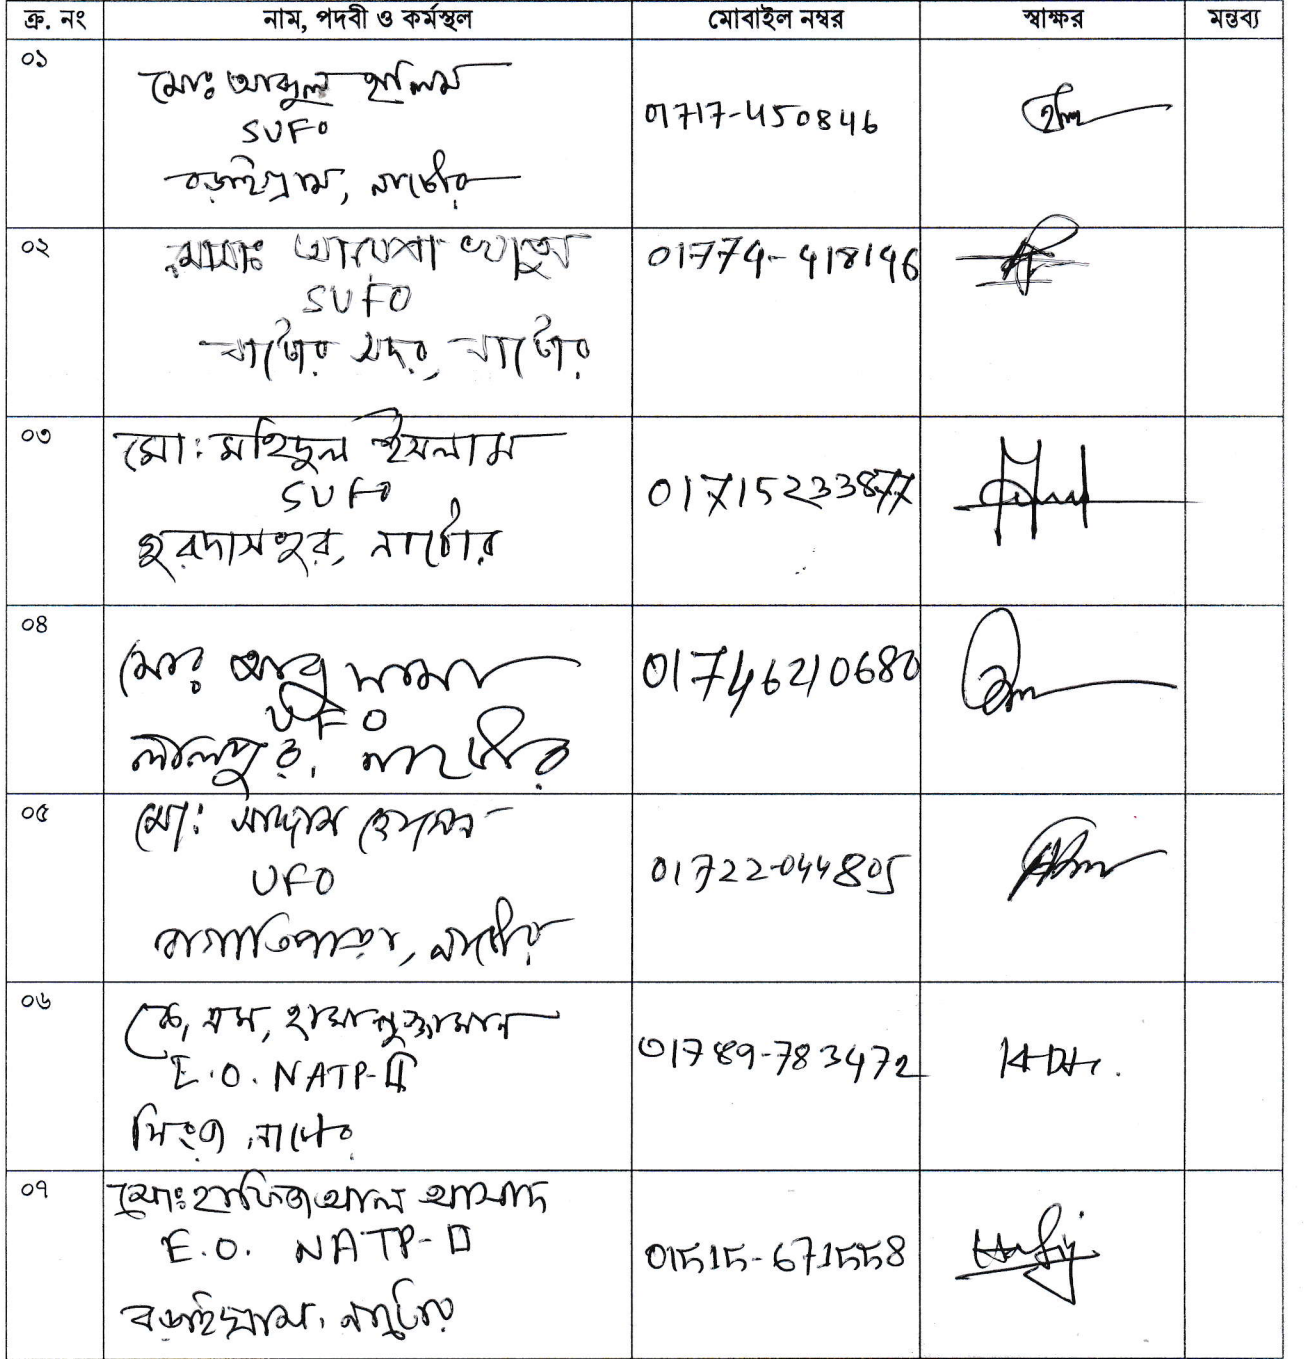 ক্র. নং নাম, পদবী ও কর্মস্থল মোবাইল নম্বর স্বাক্ষর মন্তব্য
০১
মোঃ আব্দুল হালিম
SUFO
বড়াইগ্রাম, নাটোর
01717-450846
০২
মোসাঃ আয়েশা খাতুন
SUFO
নাটোর সদর, নাটোর
01774-418146
০৩
মো: মহিদুল ইসলাম
SUFO
গুরদাসপুর, নাটোর
01715233877
০৪
মোঃ আবু সামা
UFO
লালপুর, নাটোর
01746210680
০৫
মো: সাদ্দাম হোসেন
UFO
বাগাতিপাড়া, নাটোর
01722-044805
০৬
কে, এম, হাসানুজ্জামান
E.O. NATP-II
সিংড়া, নাটোর
01789-783472
০৭
মোঃ হাফিজ আল আসাদ
E.O. NATP-II
বড়াইগ্রাম, নাটোর
01515-671558